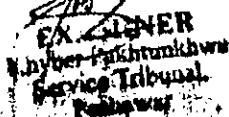 EXAMINER
Khyber Pakhtunkhwa
Service Tribunal
Peshawar